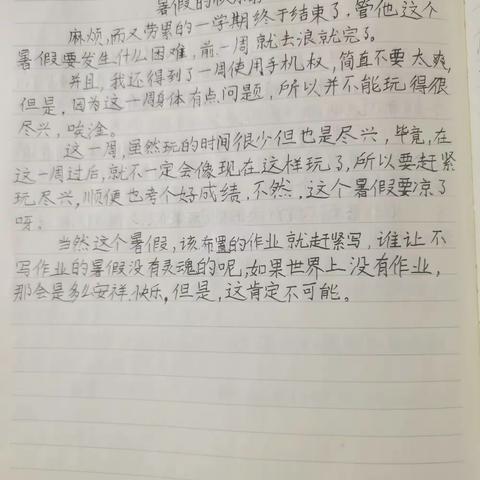 暑假的快乐
麻烦,而又劳累的一学期终于结束了,管他这个
暑假要发生什么困难,前一周就去浪就完了。
并且,我还得到了一周使用手机权,简直不要太爽,
但是,因为这一周身体有点问题,所以并不能玩得很
尽兴,唉淦。
这一周,虽然玩的时间很少但也是尽兴,毕竟,在
这一周过后,就不一定会像现在这样玩了,所以要赶紧
玩尽兴,顺便也考个好成绩,不然,这个暑假要凉了
呀。
当然这个暑假,该布置的作业就赶紧写,谁让不
写作业的暑假没有灵魂的呢,如果世界上没有作业,
那会是多么安祥.快乐,但是,这肯定不可能。